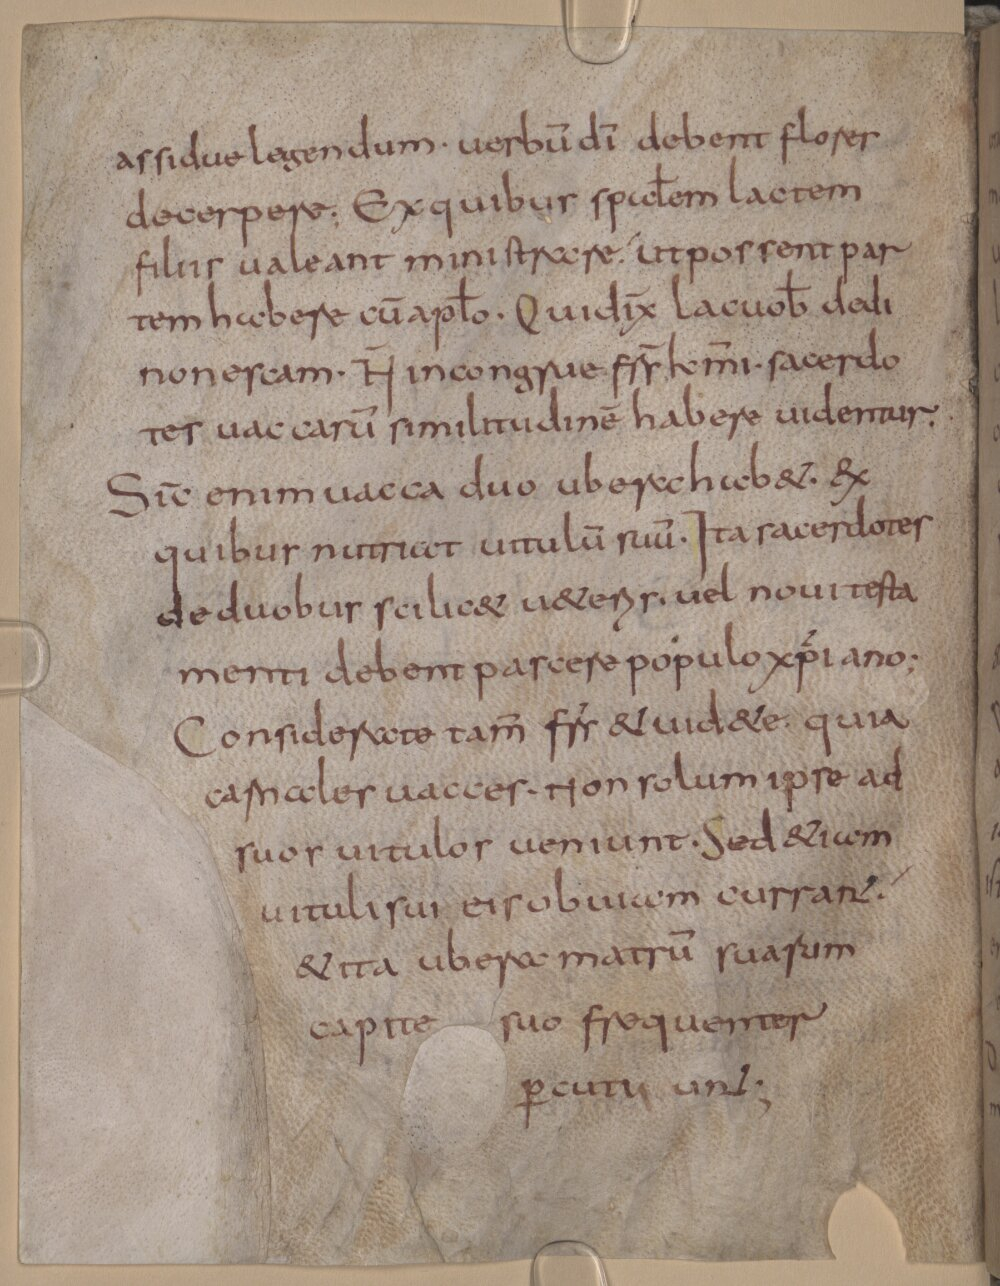 assidue legendum· uerbū dī debent flores
decerpere; Ex quibus spiɫem lactem
filiis ualeant ministrare· ut possent par
tem habere cū apɫo· Quid ix̄ lac uoƀ dedi
non escam· N̄ incongrue ff̄r km̄i· sacerdo
tes uaccarū similitudinē habere uidentur;
Sic̄ enim uacca duo ubera hab&· &x
quibus nutriat uitulū suū· Ita sacerdotes
de duobus scilic& u&eris· uel noui testa
menti debent pascere populo xp̄iano;
Considerate tam̄ ff̄r & uid&e· quia
carnales uacces· Non solum ipse ad
suos uitulos ueniunt· Sed &iam
uituli sui eis obuiam curran̄·
& ita ubera matrū suarum
capite suo frequenter
ꝑcutiun̄;